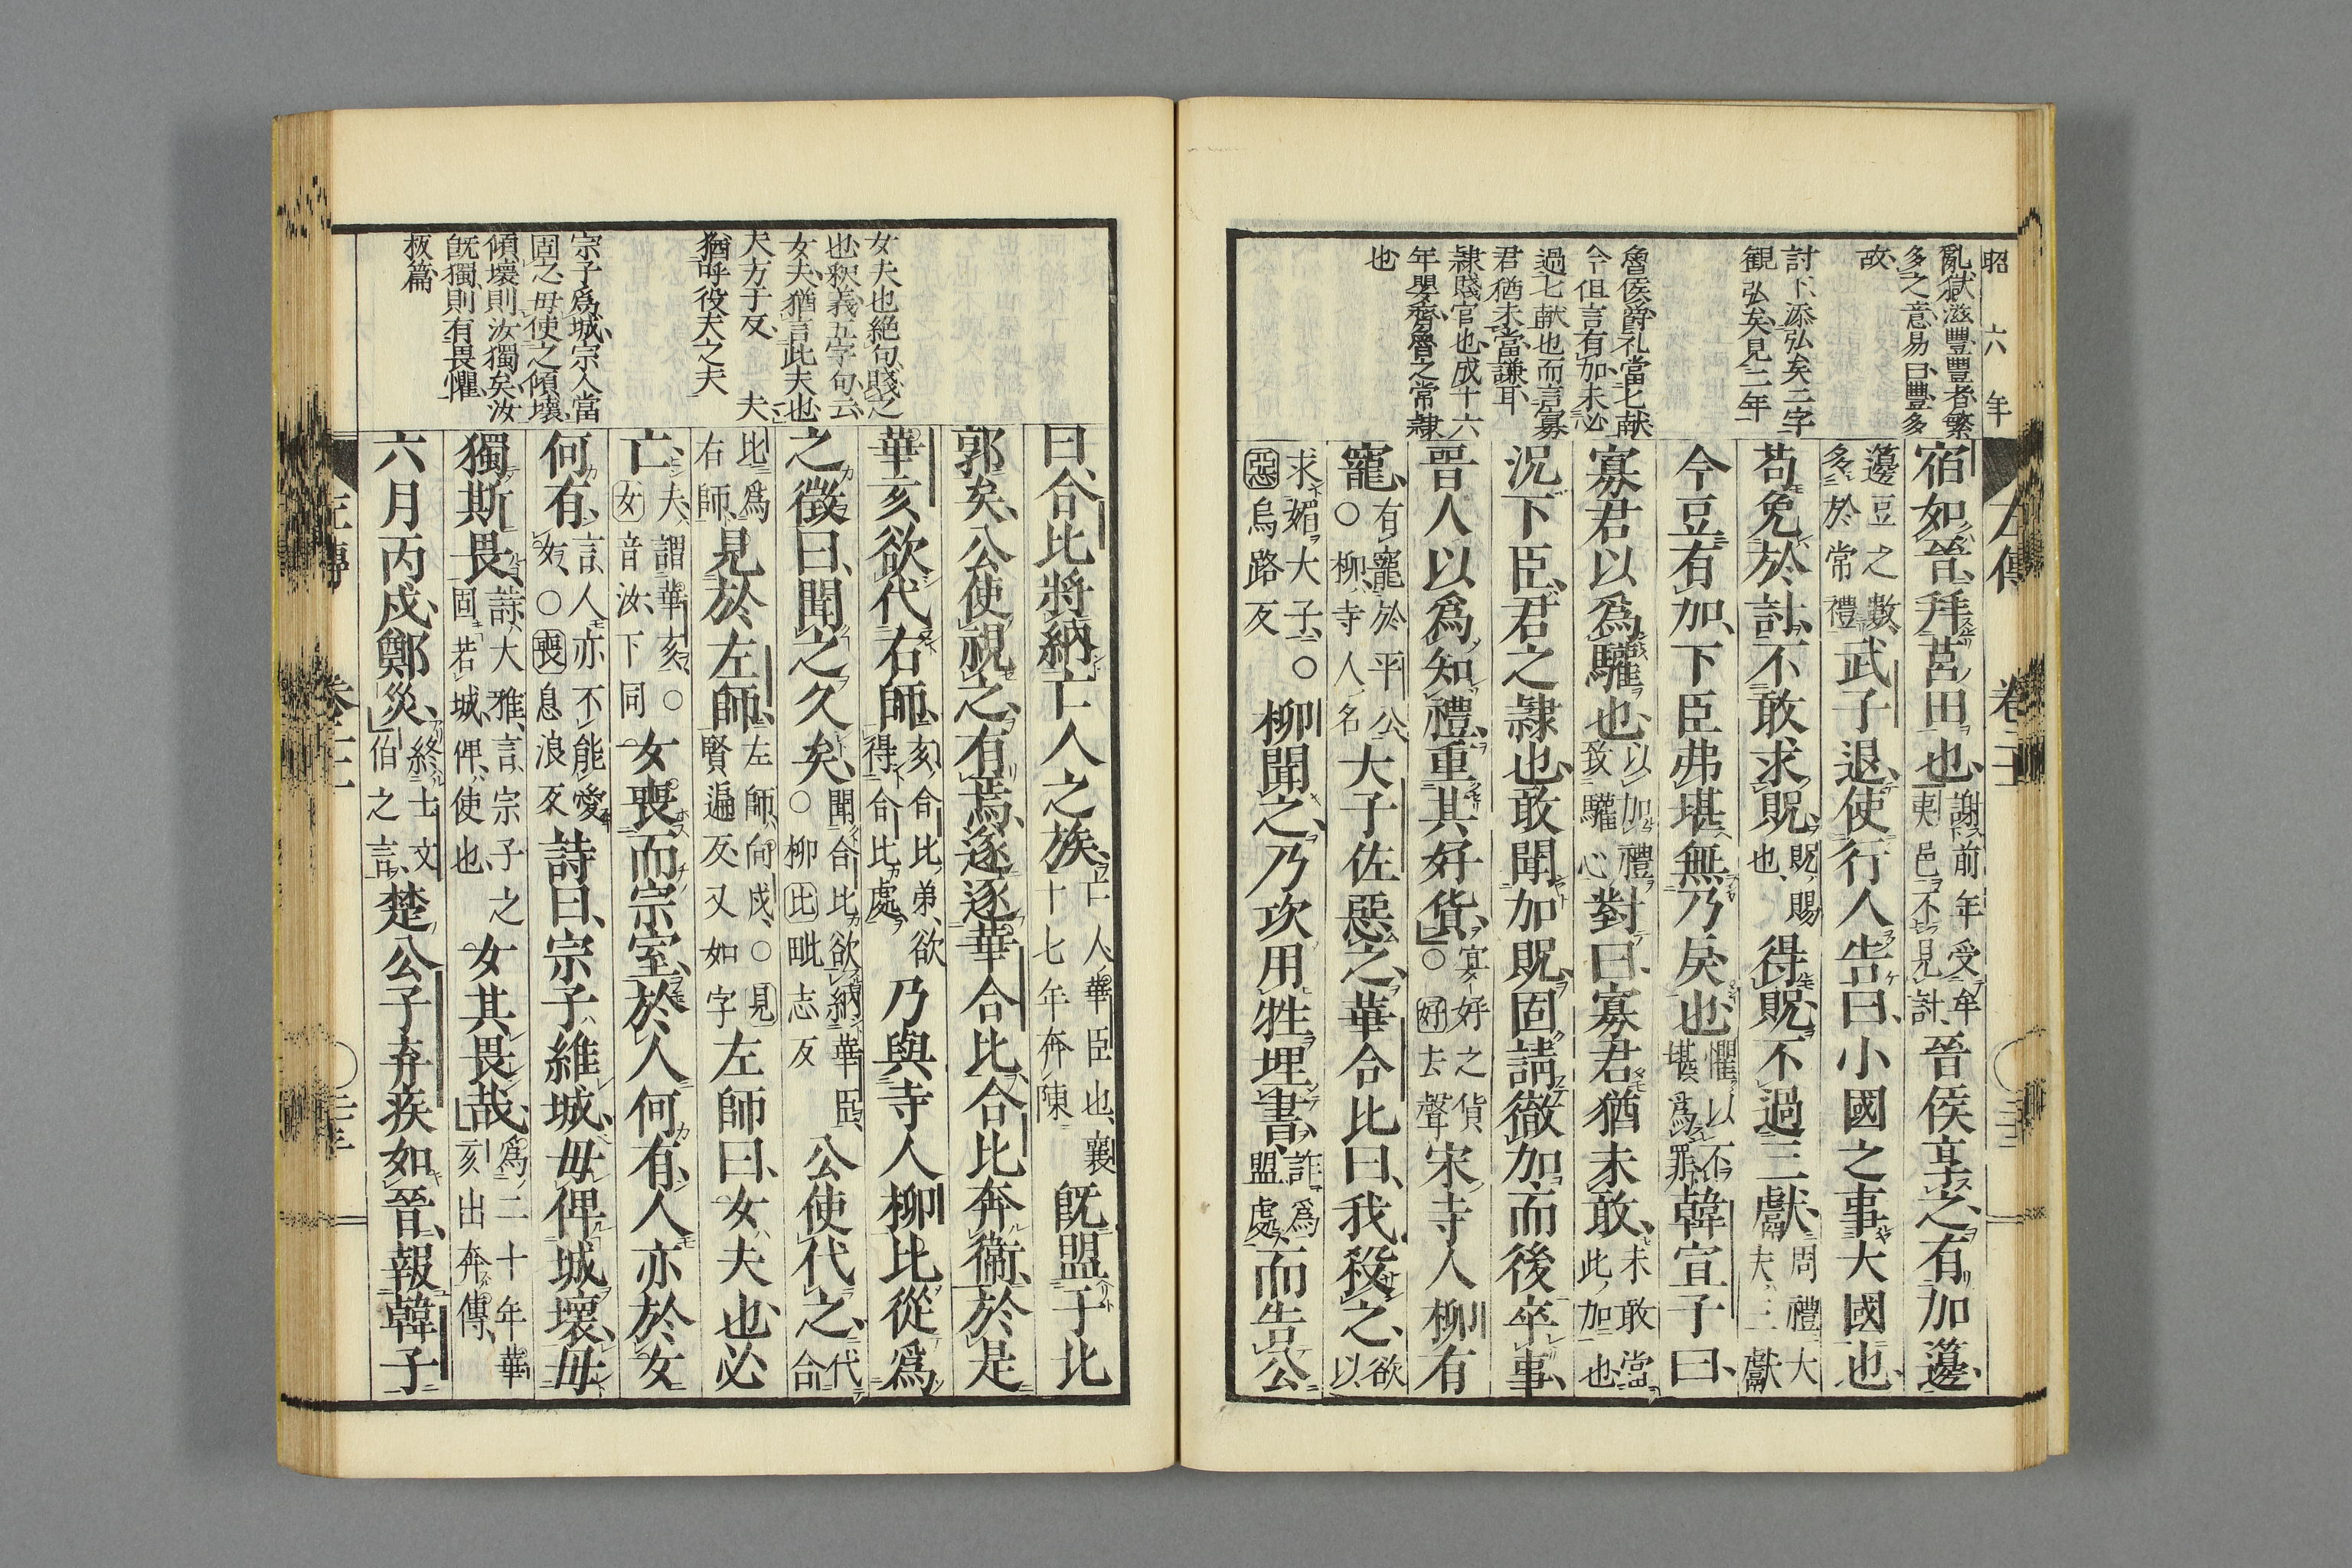 昭六年
左傳 卷二十二
亂獄滋豐豐者繁
多之意易曰豐多
故
討下添弘矣二字
観弘矣見二年
魯侯爵礼當七献
今但言有加未必
過七献也而言寡
君猶未當謙耳
隷賤官也成十六
年嬰齊魯之常隷
也
宿如晉、拜莒田也、謝前年受牟夷邑不見討、晉侯享之、有加籩、
籩豆之數、多於常禮武子退、使行人告曰、小國之事大國也、
苟免於討、不敢求貺、貺、賜也、得貺不過三獻、周禮大夫、三獻
今豆有加、下臣弗堪、無乃戾也、懼以不堪爲罪、韓宣子曰、
寡君以爲驩也、以加禮致驩心對曰、寡君猶未敢、未敢當此加也
況下臣、君之隷也、敢聞加貺、固請徹加、而後卒事、
晉人以爲知禮、重其好貨、宴好之貨○好去聲宋寺人柳有
寵、有寵於平公、○柳、寺人名大子佐惡之、華合比曰、我殺之、欲以
求媚大子、○惡烏路反柳聞之、乃坎用牲埋書、詐爲盟處而告公
女夫也絶句賤之
也釈義五字句云
女夫猶言此夫也
夫方于反 夫
猶呼役夫之夫
宗子爲城宗人當
固之毋使之傾壞
傾壞則汝獨矣汝
既獨則有畏懼
板篇
曰、合比將納亡人之族、亡人、華臣也、襄十七年奔陳既盟于北
郭矣、公使視之、有焉、遂逐華合比、合比奔衛、於是
華亥欲代右師、亥、合比弟、欲得合比處乃與寺人柳比、從爲
之徵曰、聞之久矣、聞合比欲納華臣、○柳比毗志反公使代之、代合
比爲右師、見於左師、左師、向戌、○見賢遍反、又如字左師曰、女夫也、必
亡、夫、謂華亥○女音汝、下同女喪而宗室、於人何有、人亦於女
何有、言人亦不能愛女、○喪息浪反詩曰、宗子維城、毋俾城壞、毋
獨斯畏、詩、大雅、言宗子之固若城、俾、使也、女其畏哉、爲二十年華亥出奔傳、
六月丙戌、鄭災、終士文伯之言楚公子弃疾如晉、報韓子
左傳 卷二十二